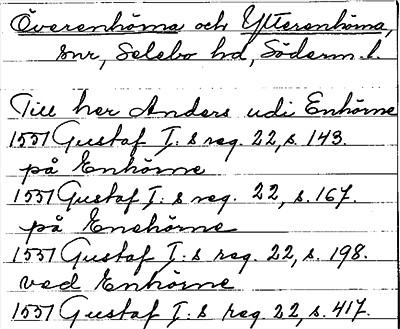 Överenhörna och Ytterenhörna,
snr, Selebo hd, Söderm. l.
Till her Anders udi Enhörne
1551 Gustaf I:s reg. 22, s. 143.
på Enhörne
1551 Gustaf I:s reg. 22, s. 167.
på Enehörne
1551 Gustaf I:s reg. 22, s. 198.
ved Enhörne
1551 Gustaf I:s reg. 22, s. 417.